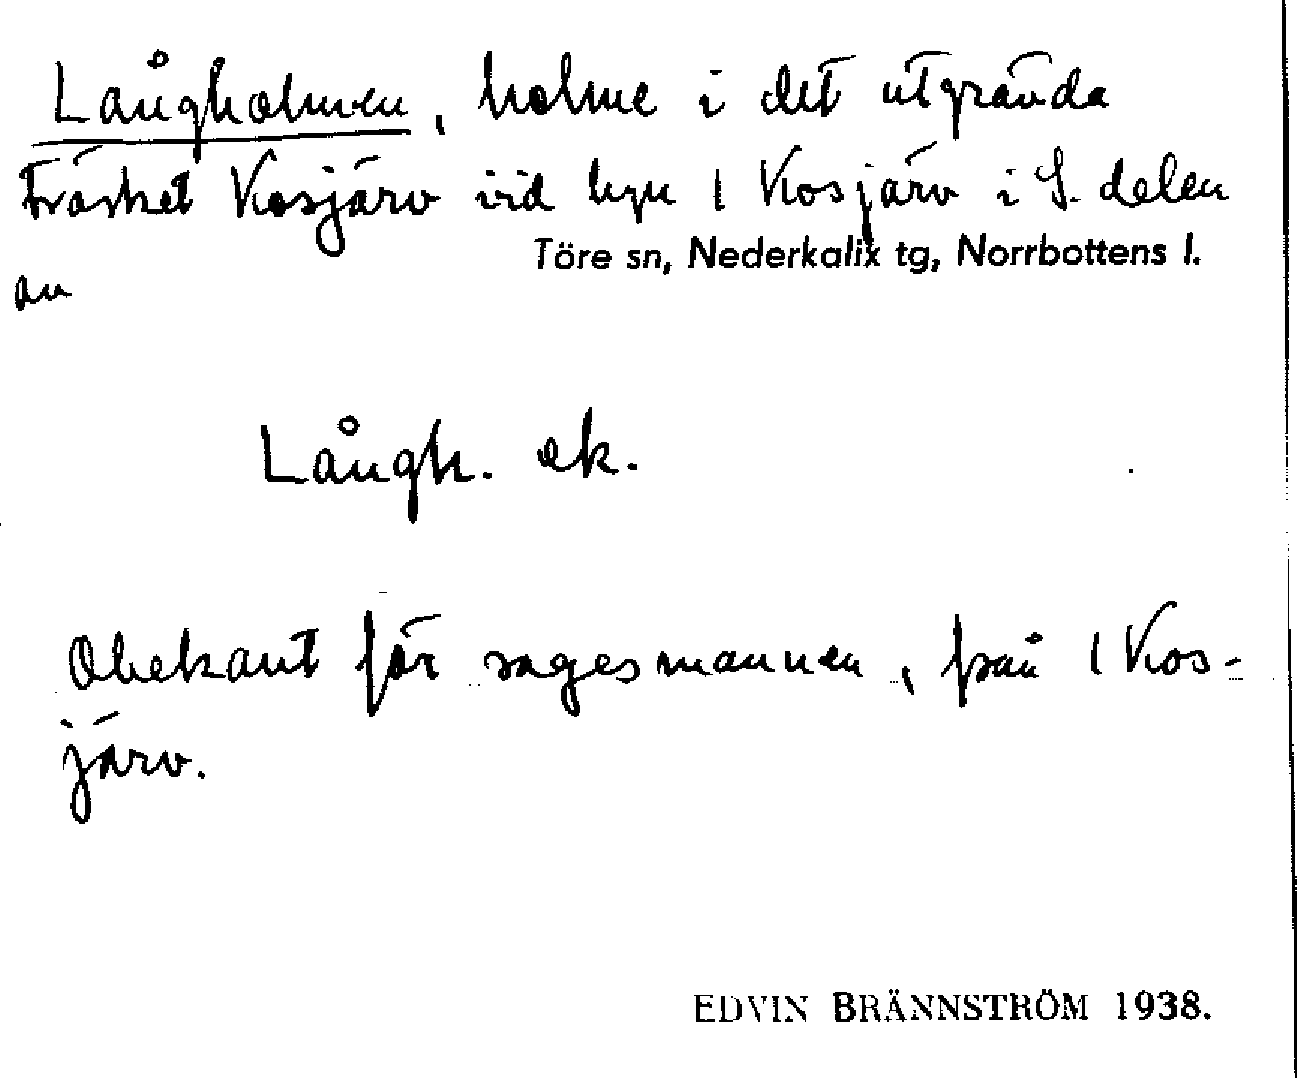 Långholmen, holme i det utgrävda
träsket Kosjärv vid byn 1 Kosjärv i S. delen
Töre sn, Nederkalix tg, Norrbottens l.
av
Långh. ek.
Obekant för sagesmannen, från 1 Kos-
järv.
EDVIN BRÄNNSTRÖM 1938.